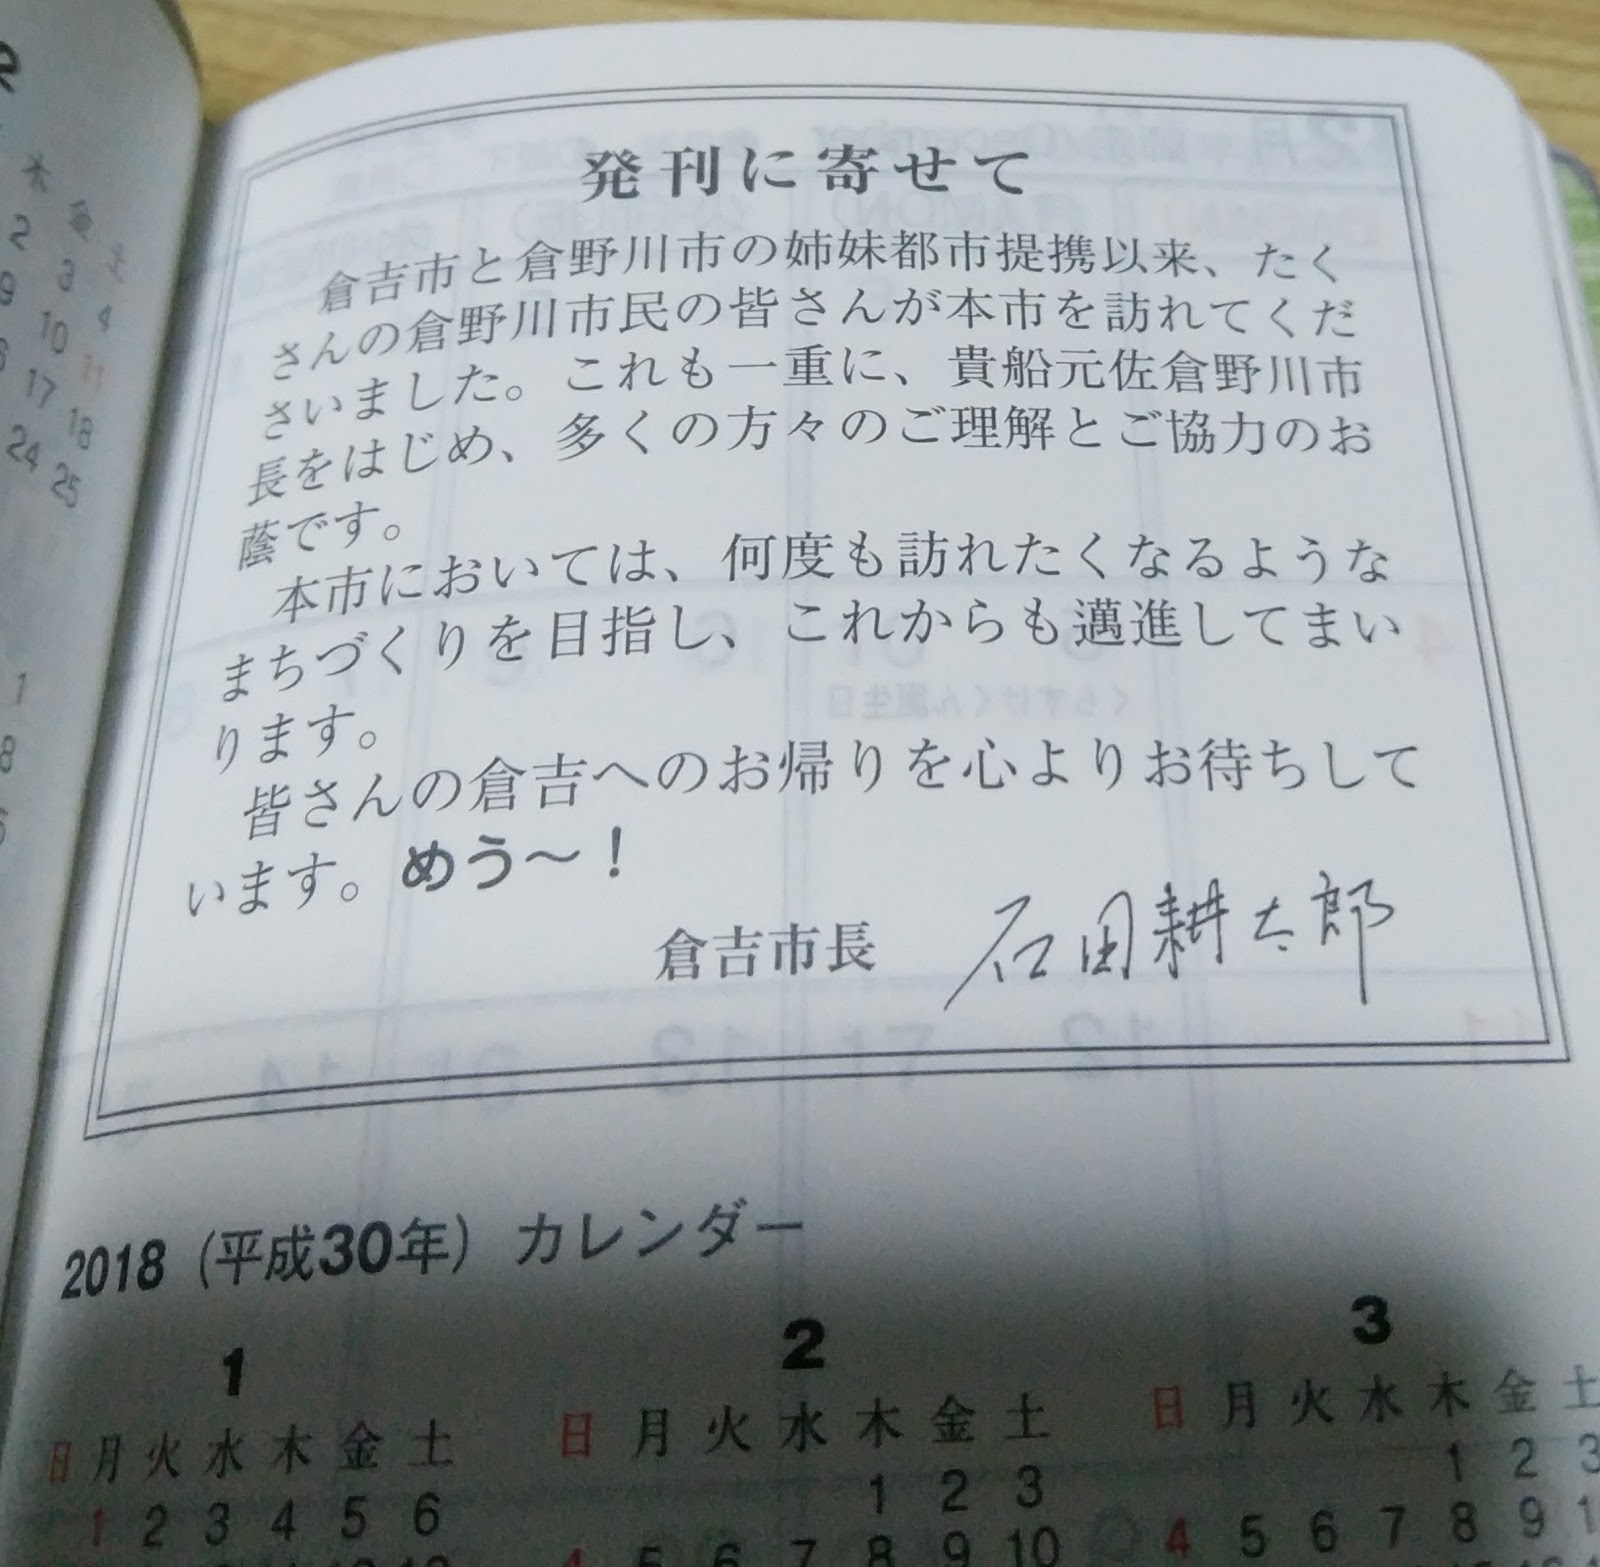 発刊に寄せて
倉吉市と倉野川市の姉妹都市提携以来、たく
さんの倉野川市民の皆さんが本市を訪れてくだ
さいました。これも一重に、貴船元佐倉野川市
長をはじめ、多くの方々のご理解とご協力のお
蔭です。
本市においては、何度も訪れたくなるような
まちづくりを目指し、これからも邁進してまい
ります。
皆さんの倉吉へのお帰りを心よりお待ちして
います。めう〜！
倉吉市長 石田耕太郎
2018（平成30年）カレンダー
1 2 3
日 月 火 水 木 金 土 日 月 火 水 木 金 土 日 月 火 水 木 金 土
1 2 3 4 5 6 1 2 3 1 2 3
4 5 6 7 8 9 10 4 5 6 7 8 9
2 3 4
9 10 11
17 18
24 25